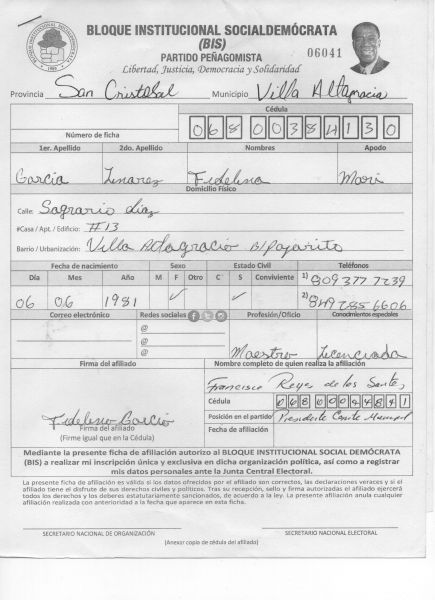 BLOQUE INSTITUCIONAL SOCIALDEMÓCRATA
(BIS)
PARTIDO PEÑAGOMISTA
06041
Libertad, Justicia, Democracia y Solidaridad
Provincia San Cristobal Municipio Villa Altagracia
Cédula
Número de ficha 06800384130
1er. Apellido 2do. Apellido Nombres Apodo
Garcia Linarez Fidelina Mari
Domicilio Físico
Calle: Sagrario Diaz
#Casa / Apt. / Edificio: #13
Barrio / Urbanización: Villa Altagracia B/Pajarito
Fecha de nacimiento Sexo Estado Civil Teléfonos
Día Mes Año M F Otro C S Conviviente 1) 809 377 7239
06 06 1981 ✓ ✓ 2) 849 285 6606
Correo electrónico Redes sociales Profesión/Oficio Conocimientos especiales
@
@
@
Maestro Licenciada
Firma del afiliado Nombre completo de quien realiza la afiliación
Francisco Reyes de los Santos
Cédula 06800044841
Posición en el partido Presidente Comite Municipal
Fecha de afiliación
Fidelina Garcia
Firma del afiliado
(Firme igual que en la Cédula)
Mediante la presente ficha de afiliación autorizo al BLOQUE INSTITUCIONAL SOCIAL DEMÓCRATA
(BIS) a realizar mi inscripción única y exclusiva en dicha organización política, así como a registrar
mis datos personales ante la Junta Central Electoral.
La presente ficha de afiliación es válida si los datos ofrecidos por el afiliado son correctos, las declaraciones veraces y si el
afiliado tiene el disfrute de sus derechos civiles y políticos. Tras su recepción, sello y firma autorizadas el afiliado ejercerá
todos los derechos y los deberes estatutariamente sancionados, de acuerdo a la ley. La presente afiliación anula cualquier
afiliación realizada con anterioridad a la fecha que aparece en esta ficha.
SECRETARIO NACIONAL DE ORGANIZACIÓN SECRETARIO NACIONAL ELECTORAL
(Anexar copia de cédula del afiliado)